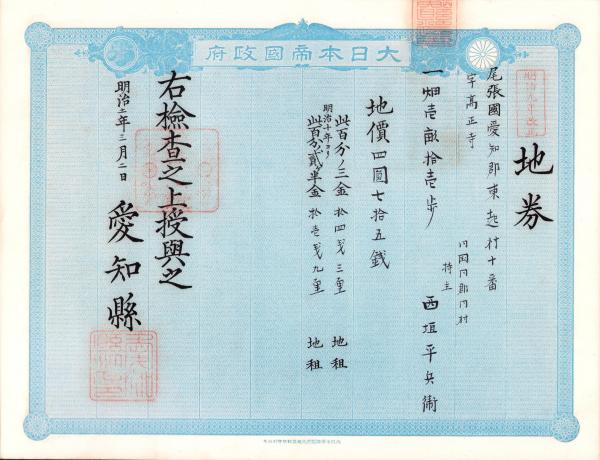 大日本帝國政府
明治九年改正
地券
尾張國愛知郡東起村十番
字高正寺
一畑壱畝拾壱歩
同國同郡同村
持主 西垣平兵衛
地價四圓七拾五銭
此百分ノ三金 拾四銭三厘 地租
明治十年ヨリ
此百分ノ貳半金 拾壱銭九厘 地租
右檢查之上授與之
明治十二年三月二日 愛知縣